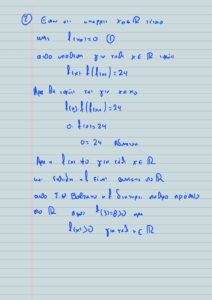 ② Εστω οτι υπαρχει x₀∈ℝ τετοιο
ωστε f(x₀)=0 ①
απο υποθεση για καθε x∈ℝ ισχυει
f(x) f(f(x))=24
Αρα θα ισχυει και για x=x₀
f(x₀) f(f(x₀))=24
0·f(0)=24
0=24 Αδυνατο
Αρα f(x)≠0 για καθε x∈ℝ
και επειδη η f ειναι συνεχης στο ℝ
απο Θ. Bolzano η f διατηρει σταθερο προσημο
στο ℝ αφου f(3)=8>0 αρα
f(x)>0 για καθε x∈ℝ